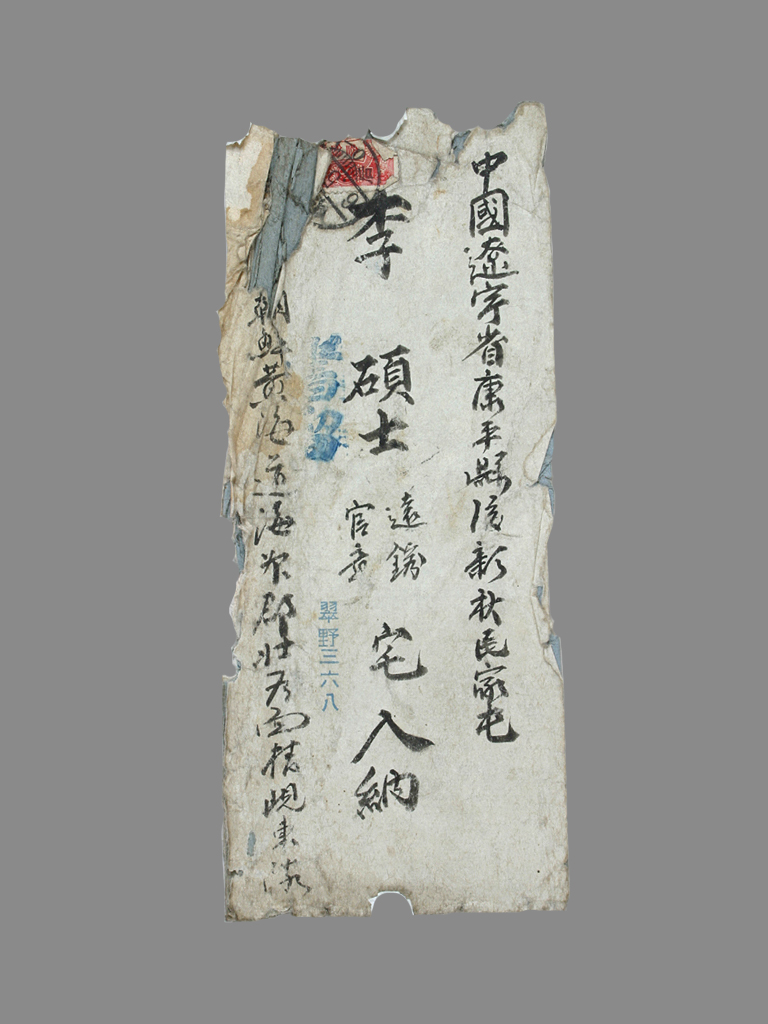 中國遼寧省康平縣後新秋民家屯
李 碩士 宅入納
遠鏽
官斎
翠野三六八
朝鮮黃海道海州郡壯谷面桂峴東